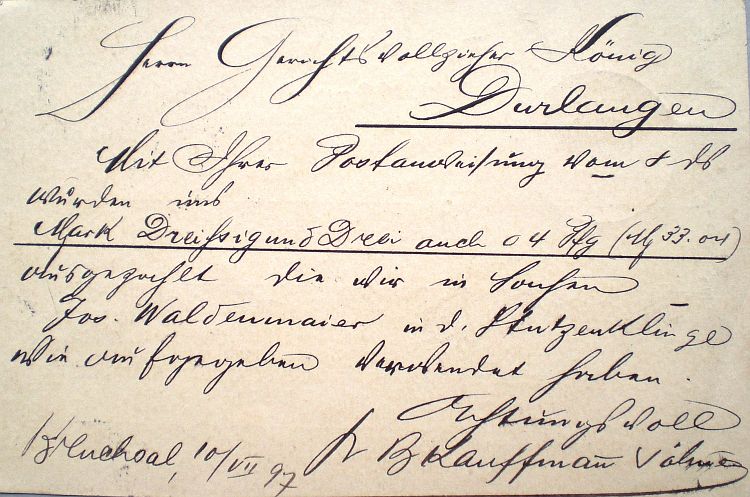 Herrn Gerichtsvollzieher König
Durlangen
Mit Ihrer Postanweisung vom 8 ds
wurden uns
Mark Dreissig und Drei auch 04 Pfg (M 33.04)
ausgezahlt die wir in Sachen
Jos. Waldenmaier in d. Stutzenklinge
wie aufgegeben verwendet haben.
Achtungsvoll
Bruchsal, 10/VII 97 B Kauffmann Söhne